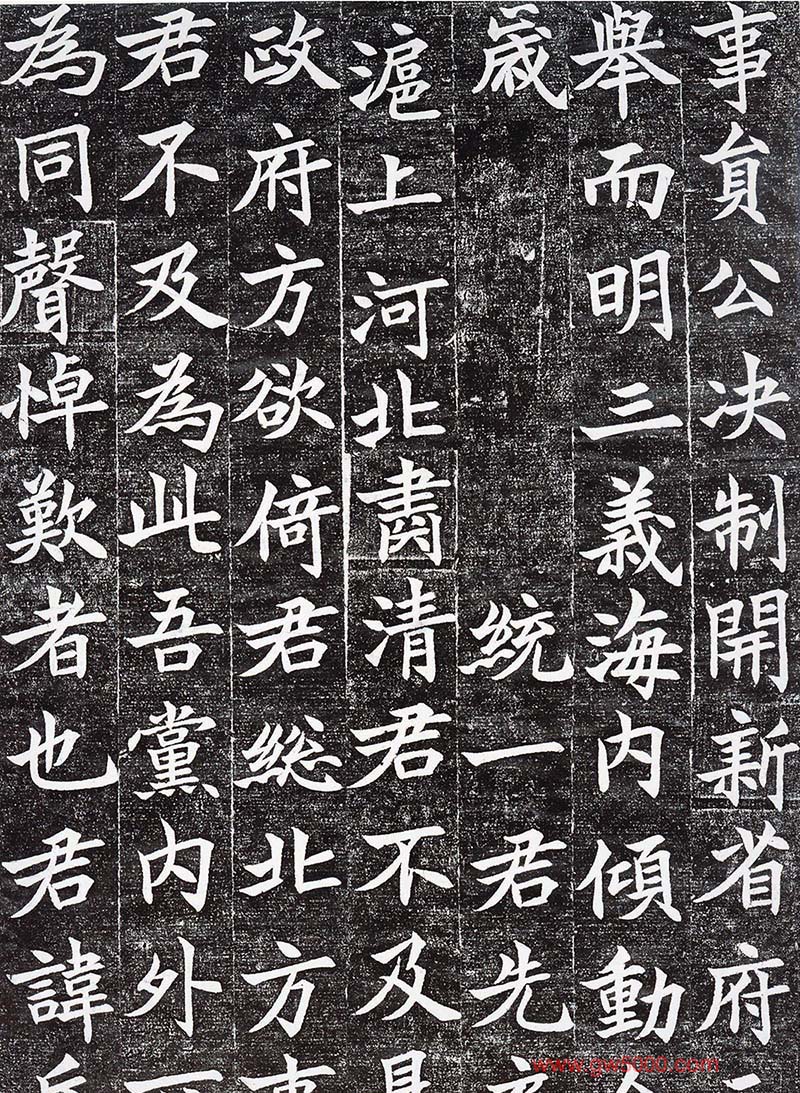 事員公决制開新省府
舉而明三義海内傾動
嵗統一君先
滬上河北肅清君不及
政府方欲倚君総北方
君不及為此吾黨内外
為同聲悼歎者也君諱
www.gw5000.com